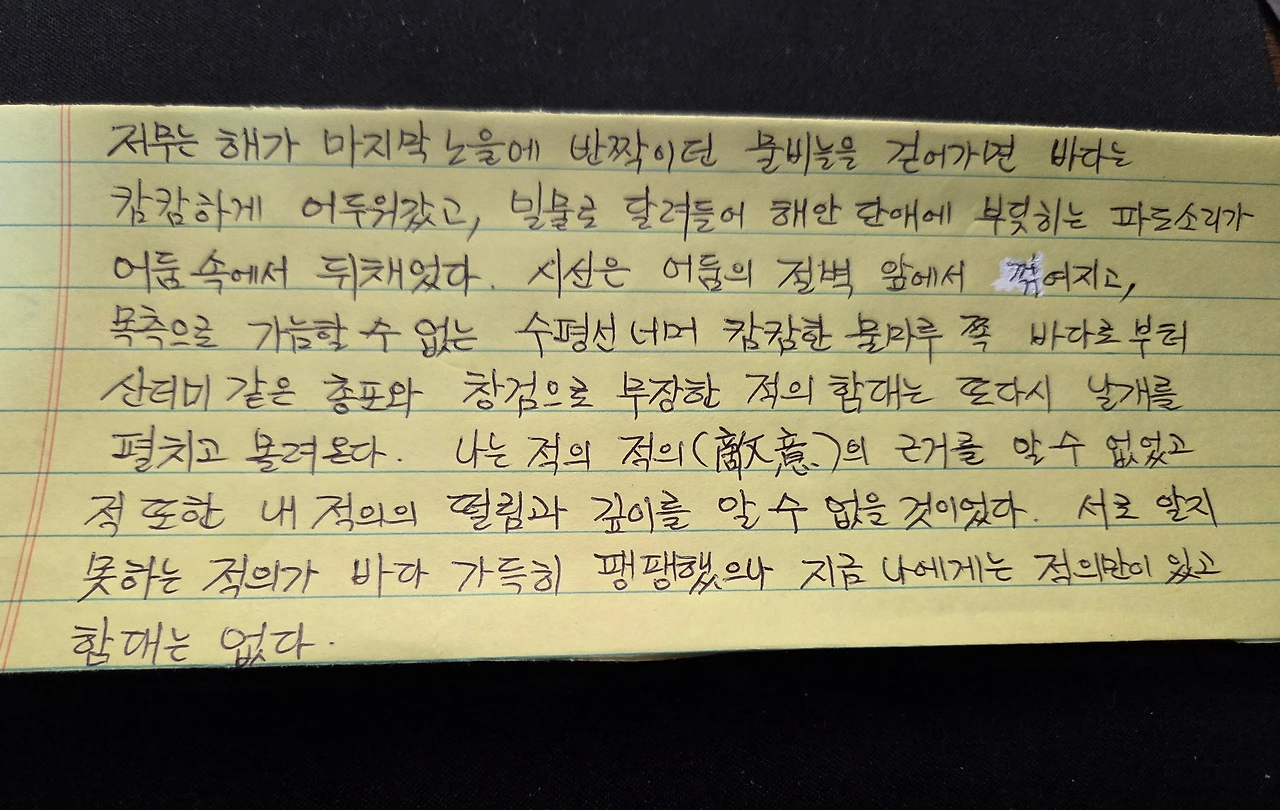 저무는 해가 마지막 노을에 반짝이던 물비늘을 걷어가면 바다는
캄캄하게 어두워갔고, 밀물로 달려들어 해안 단애에 부딪히는 파도소리가
어둠 속에서 뒤채었다. 시선은 어둠의 절벽 앞에서 꺾여지고,
목측으로 가늠할 수 없는 수평선 너머 캄캄한 물마루 쪽 바다로부터
산더미 같은 총포와 창검으로 무장한 적의 함대는 또다시 날개를
펼치고 몰려온다. 나는 적의 적의(敵意)의 근거를 알 수 없었고
적 또한 내 적의의 떨림과 깊이를 알 수 없을 것이었다. 서로 알지
못하는 적의가 바다 가득히 팽팽했으나 지금 나에게는 적의만이 있고
함대는 없다.